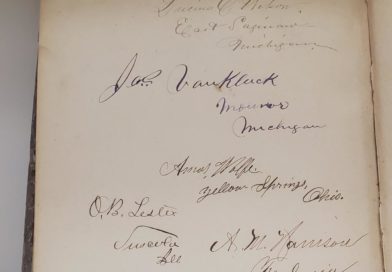 East Saginaw
Michigan
Jos. VanKluck
Monroe
Michigan
Amos Wolfe
Yellow Springs,
Ohio.
O. B. Lester
Tuscola
Ills
A. M. Harrison